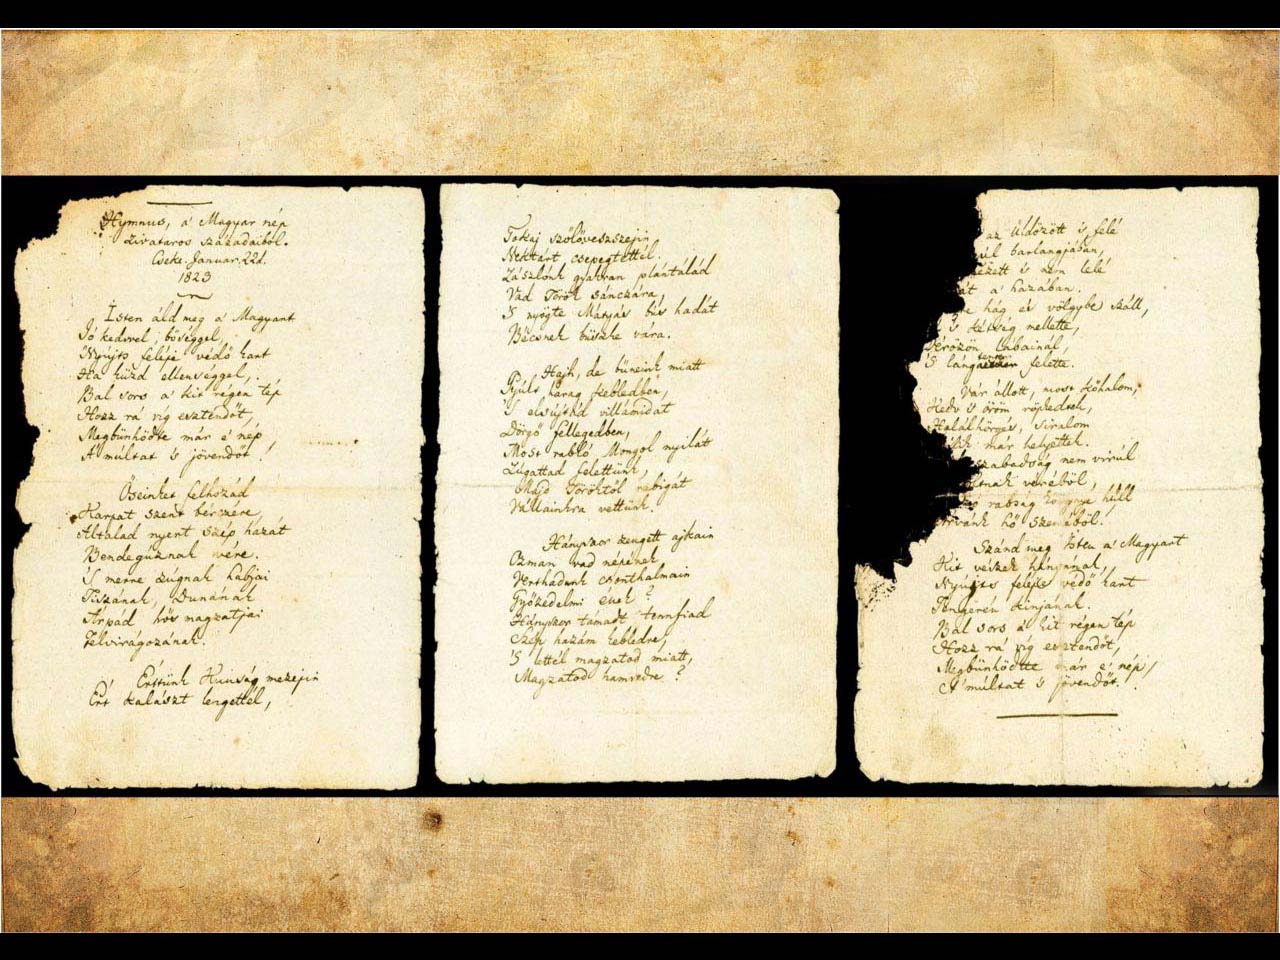 Hymnus, a' Magyar nép
zivataros századaiból.
Cseke. Januar. 22d.
1823
Isten áld meg a Magyart
Jó kedvvel, bőséggel,
Nyújts feléje védő kart
Ha küzd ellenséggel,
Bal sors a' kit régen tép
Hozz rá víg esztendőt,
Megbünhödte már e' nép
A' múltat 's jövendőt!
Őseinket felhozád
Kárpát szent bérczére,
Általad nyert szép hazát
Bendegúznak vére.
'S merre zúgnak habjai
Tiszának, Dunának
Árpád hős magzatjai
Felvirágozának.
Értünk Kunság mezejin
Ért kalászt lengettél,
Tokaj szőlőveszszejin
Nektárt csepegtettél.
Zászlónk gyakran plántálád
Vad Török sánczára,
'S nyögte Mátyás bús hadát
Bécsnek büszke vára.
Hajh, de bűneink miatt
Gyúlt harag kebledben,
'S elsújtád villámidat
Dörgő fellegedben,
Most rabló Mongol nyilát
Zúgattad felettünk,
Majd Töröktől rabigát
Vállainkra vettünk.
Hányszor zengett ajkain
Ozman vad népének
Vert hadunk csonthalmain
Győzedelmi ének?
Hányszor támadt tennfiad
Szép hazám kebledre,
'S lettél magzatod miatt,
Magzatod hamvedre?
az üldözött 's felé
barlangjában,
's nem lelé
a' hazában.
hág és völgybe száll,
's kétség mellette,
Vérözön lábainál,
'S lángtenger felette.
Vár állott, most kőhalom,
Kedv 's öröm röpkedtek,
Halálhörgés, siralom
már helyettek.
szabadság nem virúl
véréből,
rabság könnye hull
hő szeméből.
Szánd meg Isten a' Magyart
Kit vészek hányának,
Nyújts feléje védő kart
Tengerén kínjának.
Bal sors a' kit régen tép
Hozz rá víg esztendőt,
Megbünhödte már e' nép
A' múltat 's jövendőt.